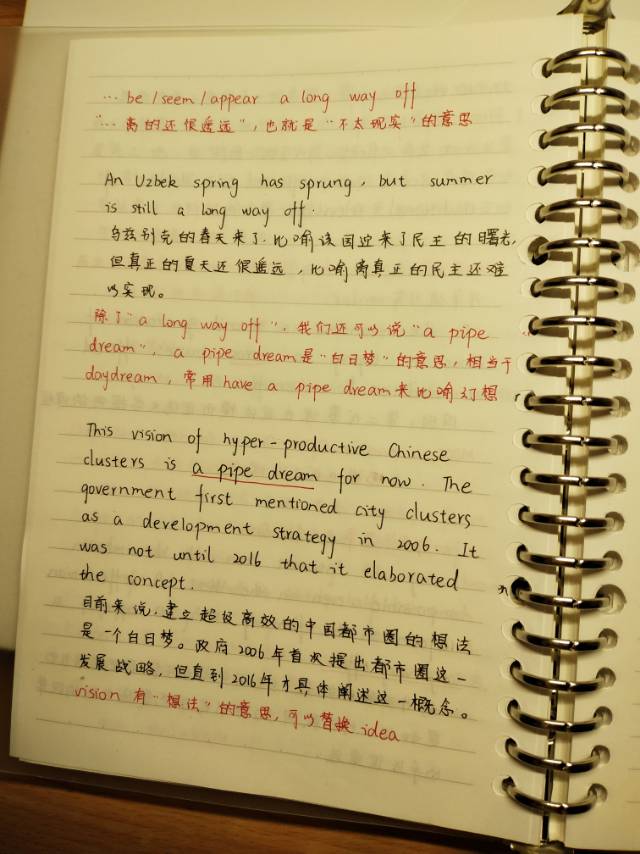 ... be/seem/appear a long way off
"... 离的还很遥远", 也就是 "不太现实" 的意思
An Uzbek spring has sprung, but summer
is still a long way off.
乌兹别克的春天来了, 比喻该国迎来了民主的曙光,
但真正的夏天还很遥远, 比喻离真正的民主还难
以实现。
除了 "a long way off", 我们还可以说 "a pipe
dream", a pipe dream是 "白日梦" 的意思, 相当于
daydream, 常用 have a pipe dream来比喻幻想
This vision of hyper-productive Chinese
clusters is a pipe dream for now. The
government first mentioned city clusters
as a development strategy in 2006. It
was not until 2016 that it elaborated
the concept.
目前来说, 建立超级高效的中国都市圈的想法
是一个白日梦。政府2006年首次提出都市圈这一
发展战略, 但直到2016年才具体阐述这一概念。
vision 有 "想法" 的意思, 可以替换 idea